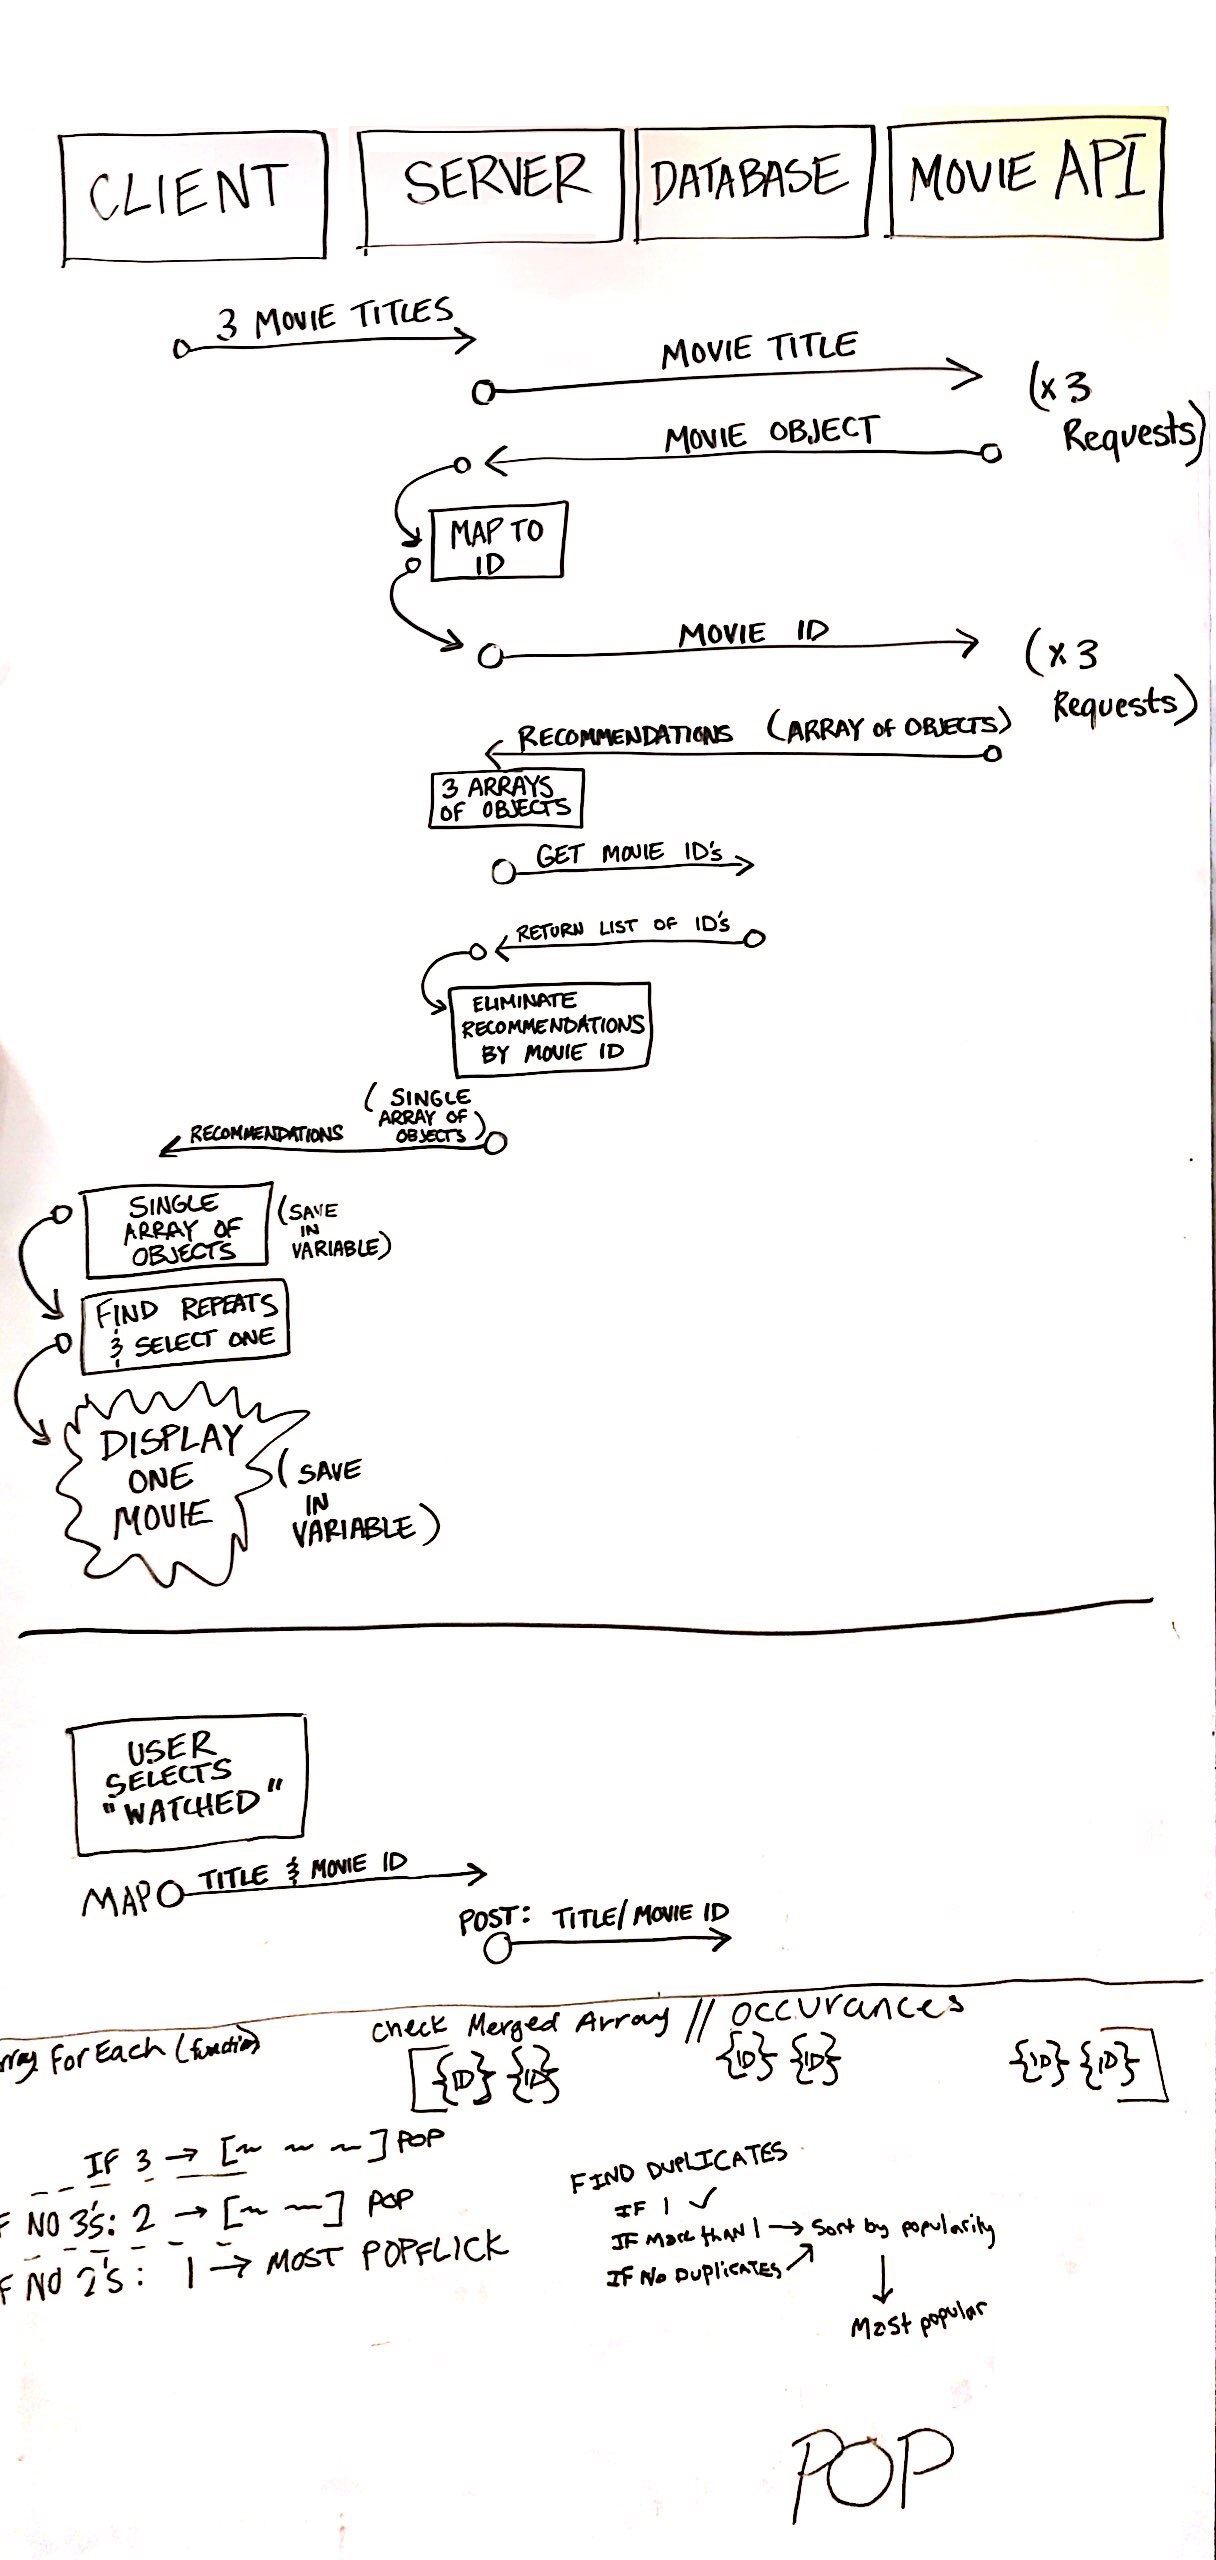 CLIENT
SERVER
DATABASE
MOVIE API
3 MOVIE TITLES
MOVIE TITLE
(x 3
Requests)
MOVIE OBJECT
MAP TO
ID
MOVIE ID
(x 3
Requests)
RECOMMENDATIONS (ARRAY OF OBJECTS)
3 ARRAYS
OF OBJECTS
GET MOVIE ID's
RETURN LIST OF ID's
ELIMINATE
RECOMMENDATIONS
BY MOVIE ID
(SINGLE
ARRAY OF
OBJECTS)
RECOMMENDATIONS
SINGLE
ARRAY OF
OBJECTS
(SAVE
IN
VARIABLE)
FIND REPEATS
& SELECT ONE
DISPLAY
ONE
MOVIE
(SAVE
IN
VARIABLE)
USER
SELECTS
"WATCHED"
MAP
TITLE & MOVIE ID
POST: TITLE/MOVIE ID
rray ForEach (function)
check Merged Array // occurances
[{ID} {ID} {ID} {ID} {ID} {ID}]
IF 3 → [~ ~ ~] POP
F NO 3's: 2 → [~ ~] POP
F NO 2's: 1 → MOST POPFLICK
FIND DUPLICATES
IF 1 ✓
IF More than 1 → Sort by popularity
IF No Duplicates
Most popular
POP